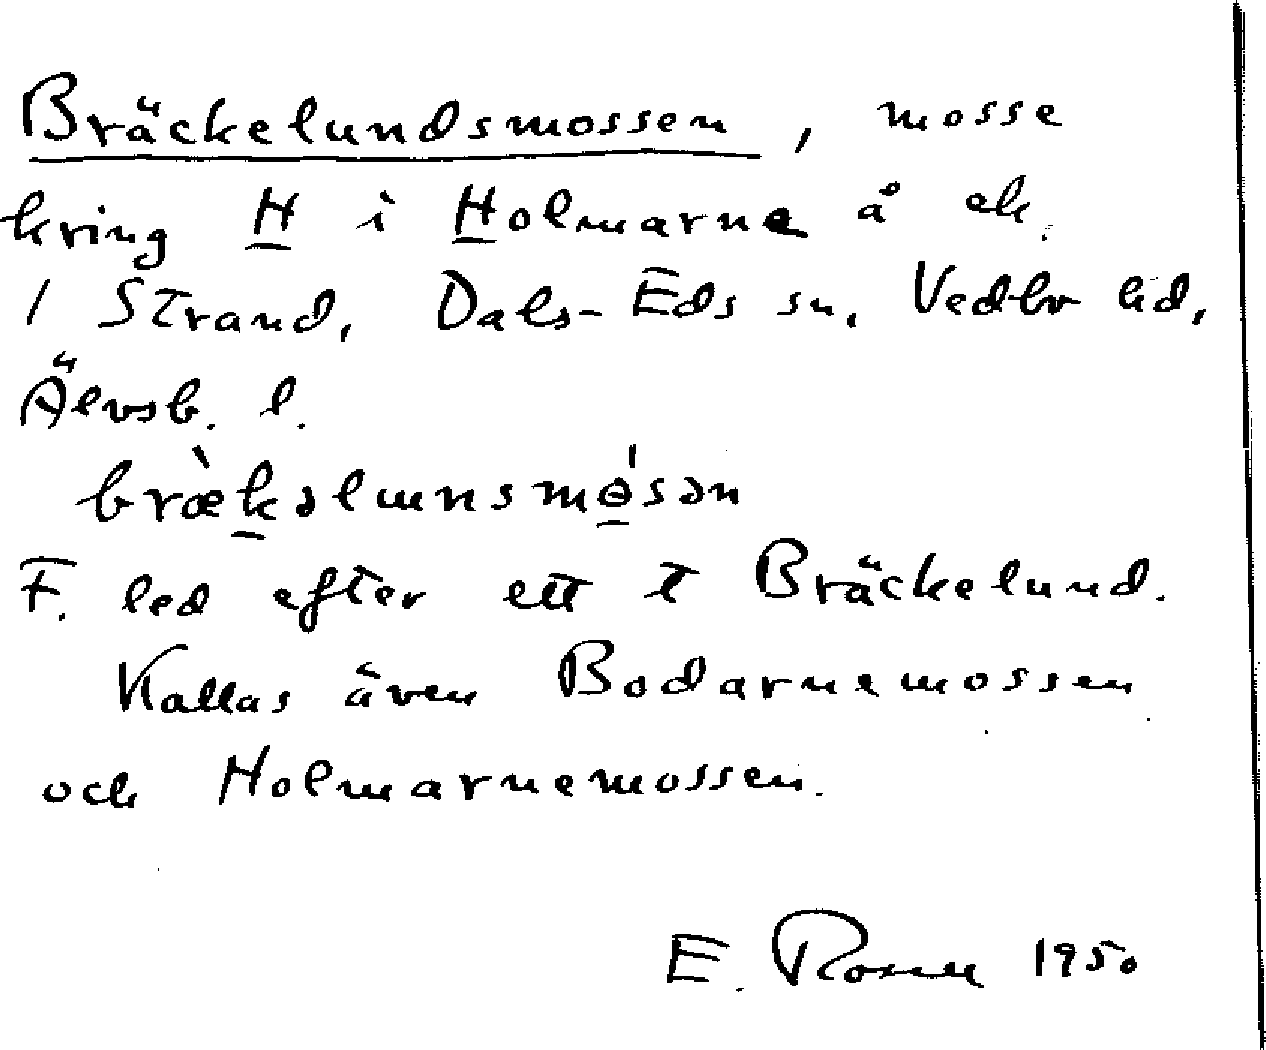 Bräckelundsmossen, mosse
kring H i Holmarne å ek.
/ Strand, Dals-Eds sn, Vedbo hd,
Älvsb. l.
brækəlunsmósən
F. led efter ett t Bräckelund.
Kallas även Bodarnemossen
och Holmarnemossen.
E. 1950